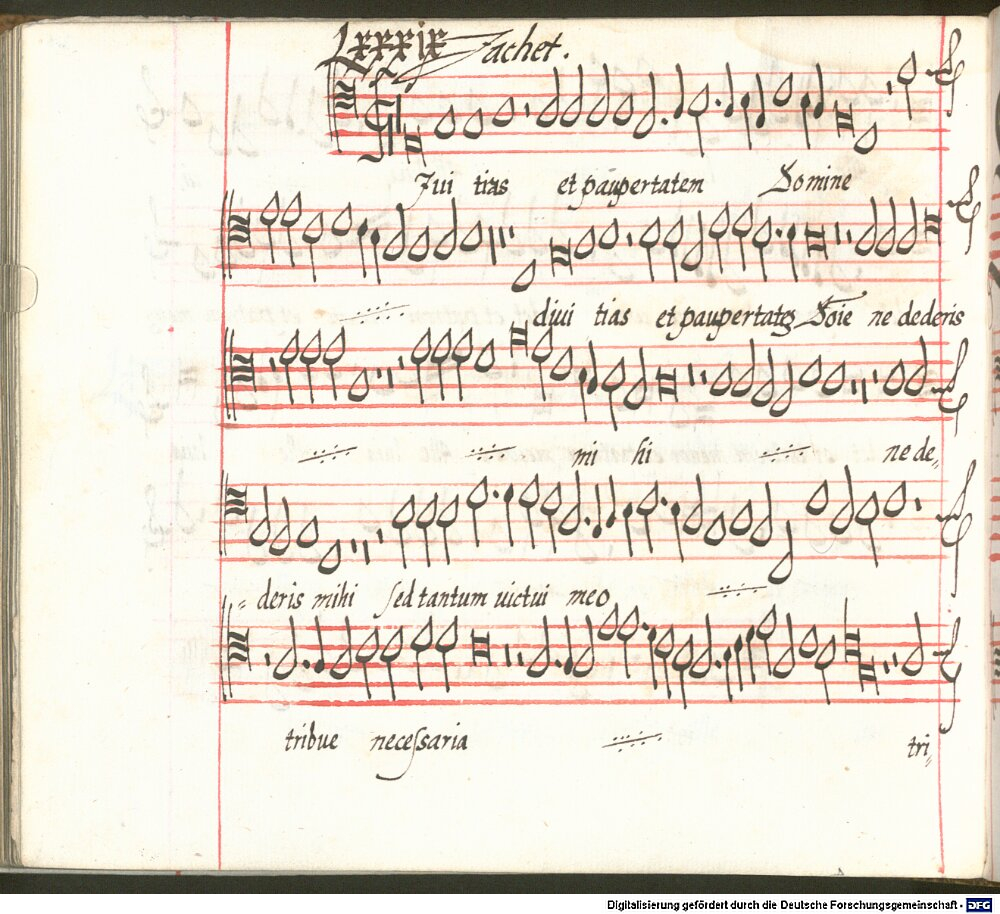 Lxxxix Jachet.
Iui tias et paupertatem Domine
diui tias et paupertatē Dōie ne dederis
mi hi ne de
deris mihi sed tantum uictui meo
tribue necessaria tri
Digitalisierung gefördert durch die Deutsche Forschungsgemeinschaft - DFG